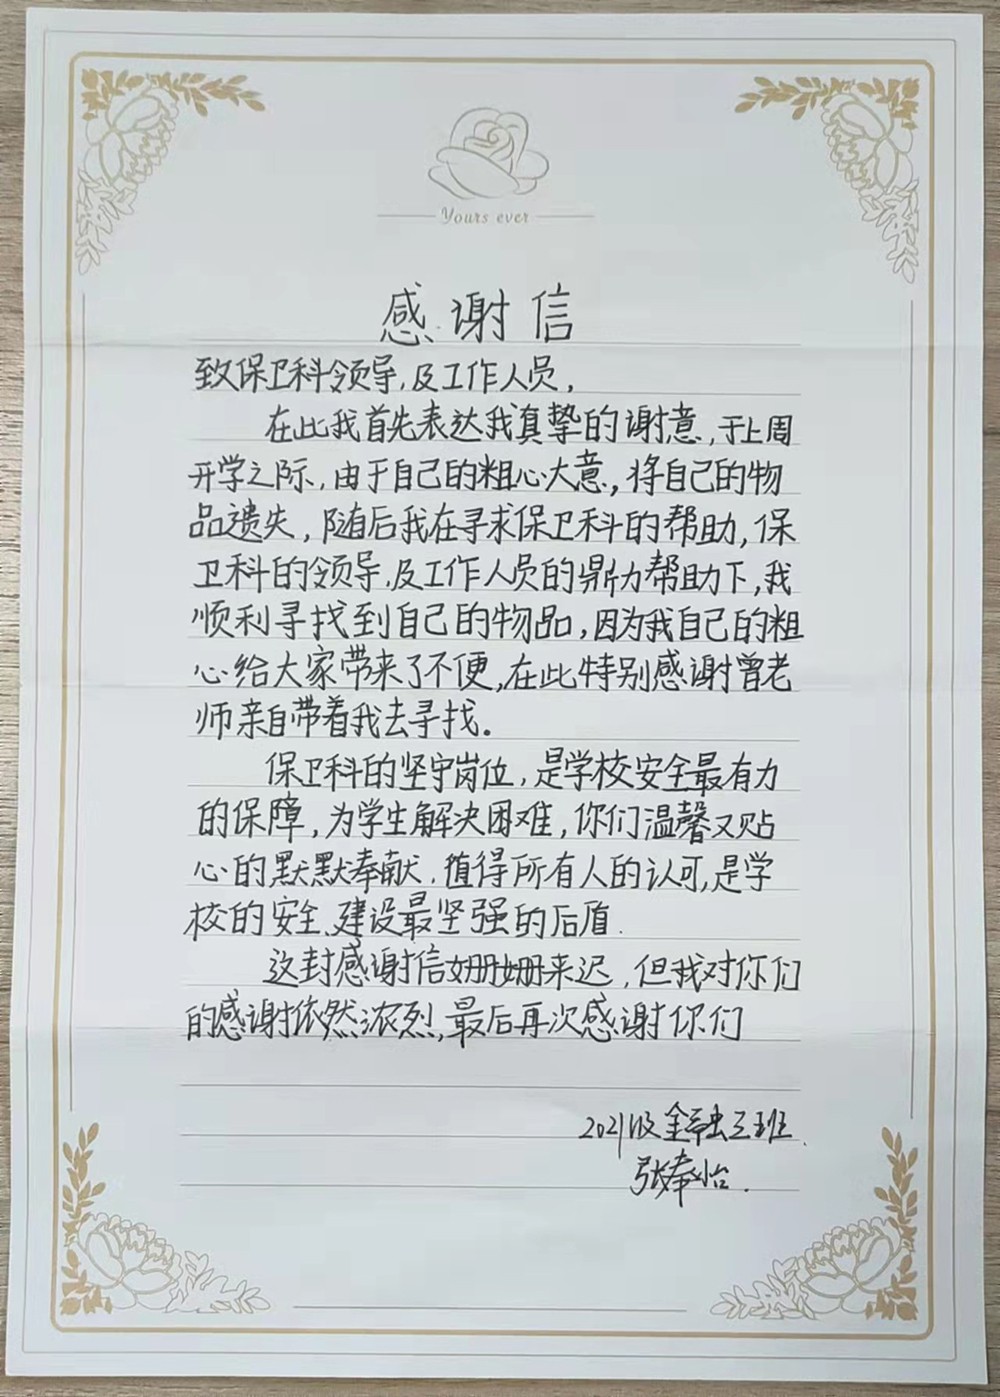 Yours ever
感谢信
致保卫科领导,及工作人员,
在此我首先表达我真挚的谢意,于上周
开学之际,由于自己的粗心大意,将自己的物
品遗失,随后我在寻求保卫科的帮助,保
卫科的领导,及工作人员的鼎力帮助下,我
顺利寻找到自己的物品,因为我自己的粗
心给大家带来了不便,在此特别感谢曾老
师亲自带着我去寻找。
保卫科的坚守岗位,是学校安全最有力
的保障,为学生解决困难,你们温馨又贴
心的默默奉献,值得所有人的认可,是学
校的安全、建设最坚强的后盾.
这封感谢信姗姗来迟,但我对你们
的感谢依然浓烈,最后再次感谢你们
2021级金融三班.
张奉怡.